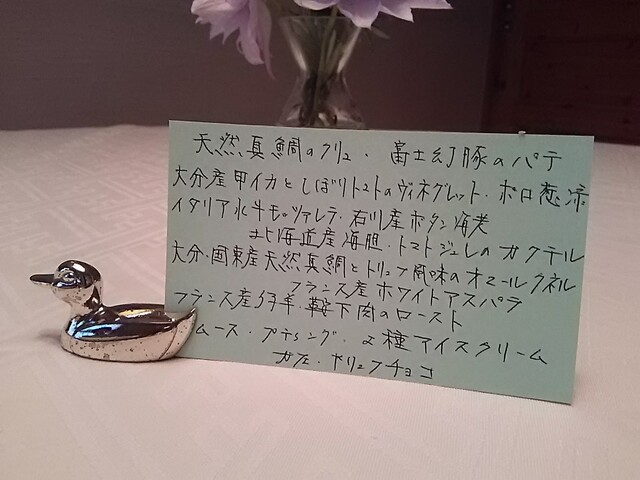 天然真鯛のクリュ・富士幻豚のパテ
大分産甲イカとしぼりトマトのヴィネグレット・ポロ葱添
イタリア水牛モッツァレラ・石川産ボタン海老
北海道産海胆・トマトジュレのカクテル
大分・国東産天然真鯛とトリュフ風味のオマールクネル
フランス産ホワイトアスパラ
フランス産仔羊・鞍下肉のロースト
ムース・プディング・2種アイスクリーム
カフェ・トリュフチョコ